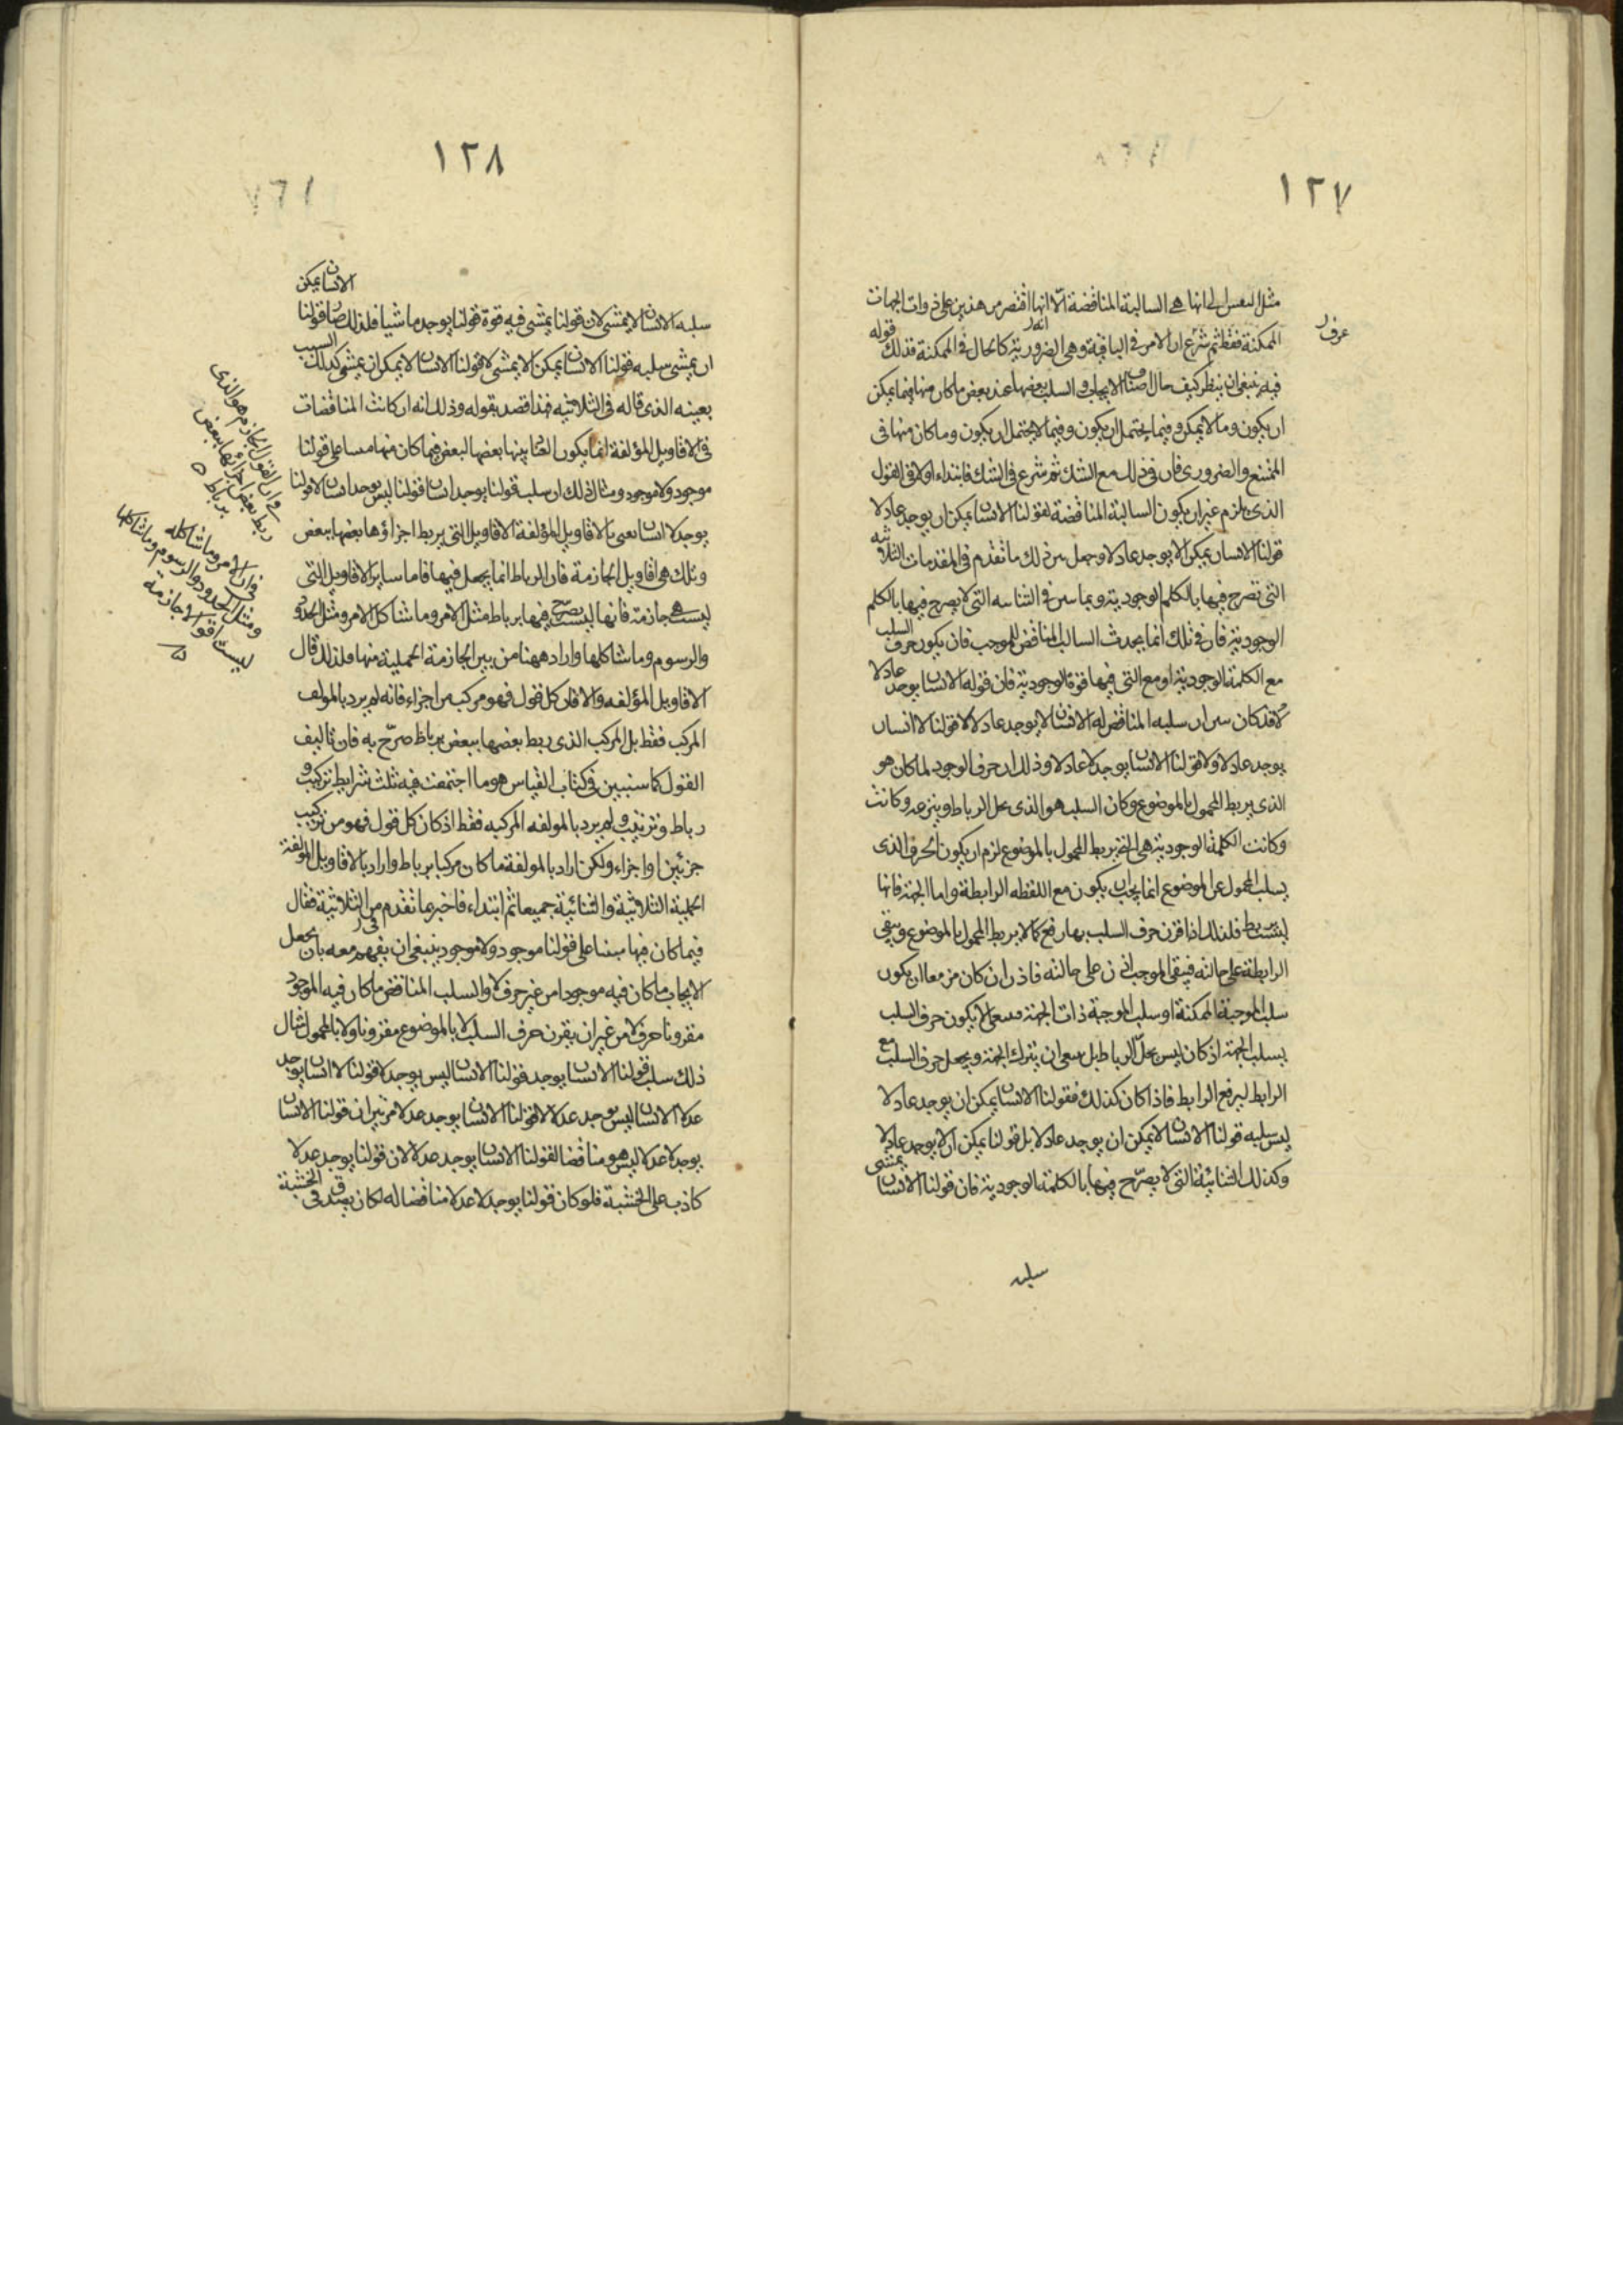 ١٢٧
مثل النفس لى انها هى السالبة المناقضة الا انها اقتصر من هذين على ذوات الجهات
الممكنة فقط ثم شرع ان الامر فى الباقية وهى الضرورية كالحال فى الممكنة فذلك قوله
عرف
فينبغى ان ينظر كيف حال اصناف الايجاب والسلب بعضها عند بعض ما كان منها فيما يمكن
ان يكون وما لا يمكن وفيما يحتمل ان يكون وفيما لا يحتمل ان يكون وما كان منها فى
الممتنع والضرورى فان فى ذلك مع الشك ثم شرع فى الشك فابتداء اولا فى القول
الذى يلزم عنه ان يكون السالبة المناقضة لقولنا الانسان يمكن ان يوجد عادلا
قولنا الانسان يمكن الا يوجد عادلا وجعل من ذلك ما تقدم فى المقدمات الثلاثيه
التى تصرح فيها بالكلم الوجودية وبما بين فى الثنائيه التى لا يصرح فيها بالكلم
الوجودية فان فى تلك انما يحدث السالب المناقض للموجب فان يكون حرف السلب
مع الكلمة الوجودية او مع التى فيها قوة الوجودية فان قوله الانسان يوجد عادلا
قد كان بين ان سلبه المناقض له الانسان لا يوجد عادلا لا قولنا لا انسان
يوجد عادلا ولا قولنا الانسان يوجد لا عادلا وذلك ان حرف الوجود لما كان هو
الذى يربط المحمول بالموضوع وكان السلب هو الذى يحل الرباط وينزعه وكانت
وكانت الكلمة الوجودية هى التى تربط المحمول بالموضوع لزم ان يكون الحرف الذى
يسلب المحمول عن الموضوع انما يجب ان يكون مع اللفظه الرابطة واما الجهة فانها
ليست تربط فلذلك اذا قرن حرف السلب بها رفع كما لا يربط المحمول بالموضوع ويبقى
الرابطة على حالته فيبقى الموجب اذن على حالته فاذن ان كان مزمعا ان يكون
سلب الموجبة الممكنة او سلب الموجبة ذات الجهة فينبغى الا يكون حرف السلب
يسلب الجهة اذ كان ليس يحل الرباط بل ينبغى ان يترك الجهة ويجعل حرف السلب مع
الرابط ليرفع الرابط فاذا كان كذلك فقولنا الانسان يمكن ان يوجد عادلا
ليس سلبه قولنا الانسان لا يمكن ان يوجد عادلا بل قولنا يمكن ان لا يوجد عادلا
وكذلك الثنائية التى لا يصرح فيها بالكلمة الوجودية فان قولنا الانسان يمشى
سلبه
١٢٨
سلبه الانسان لا يمشى لان قولنا يمشى فيه قوة قولنا يوجد ماشيا فلذلك صار قولنا الانسان يمكن
ان يمشى سلبه قولنا الانسان يمكن الا يمشى لا قولنا الانسان لا يمكن ان يمشى كذلك السبب
بعينه الذى قاله فى الثلاثيه فهذا قصد بقوله وذلك انه ان كانت المناقضات
فى الاقاويل المؤلفة انما يكون العناد بينها بعضها لبعض فيما كان منها مبنيا على قولنا
موجود ولا موجود ومثال ذلك ان سلب قولنا يوجد انسانا قولنا ليس يوجد انسانا لا قولنا
يوجد لا انسانا يعنى بالاقاويل المؤلفة الاقاويل التى يربط اجزاؤها بعضها ببعض
وتلك هى اقاويل الجازمة فان الرباط انما يجعل فيها فاما سائر الاقاويل التى
ليست هى جازمة فانها ليست يصرح فيها برباط مثل الامر وما شاكل الامر ومثل الحدود
والرسوم وما شاكلها واراد ههنا من بين الجازمة الحملية منها فلذلك قال
الاقاويل المؤلفه والا فان كل قول فهو مركب من اجزاء فانه لم يرد بالمولف
المركب فقط بل المركب الذى ربط بعضها ببعض برباط صرح به فان تاليف
القول كما سنبين فى كتاب القياس هو ما اجتمعت فيه ثلث شرايط تركيب و
رباط وترتيب ولم يرد بالمولفه المركبه فقط اذ كان كل قول فهو من تركيب
جزئين او اجزاء ولكن اراد بالمولفة ما كان مركبا برباط واراد بالاقاويل المؤلفة
الحملية الثلاثية والثنائية جميعا ثم ابتداء فاخبر عما تقدم من الثلاثية فقال
فيما كان فيها مبنيا على قولنا موجود ولا موجود ينبغى ان يفهم معه بان يجعل
الايجاب ما كان فيه موجودا من غير حرف لا والسلب المناقض ما كان فيه الموجود
مقرونا حرف لا من غير ان يقرن حرف السلب لا بالموضوع مقرونا ولا بالمحمول مثال
ذلك سلب قولنا الانسان يوجد قولنا الانسان ليس يوجد لا قولنا لا انسان يوجد
عدلا الانسان ليس يوجد عدلا لا قولنا الانسان يوجد عدلا من غير ان قولنا الانسان
يوجد لا عدلا ليس هو مناقضا لقولنا الانسان يوجد عدلا لان قولنا يوجد عدلا
كاذب على الخشبة فلو كان قولنا يوجد لا عدلا مناقضا له لكان يصدق فى الخشبة
وان القول الجازم هو الذى
ربط بعض اجزائها ببعض
برباط
فان الامر وما شاكله
ومثل الحدود والرسوم وما شاكلها
ليست اقوالا جازمة